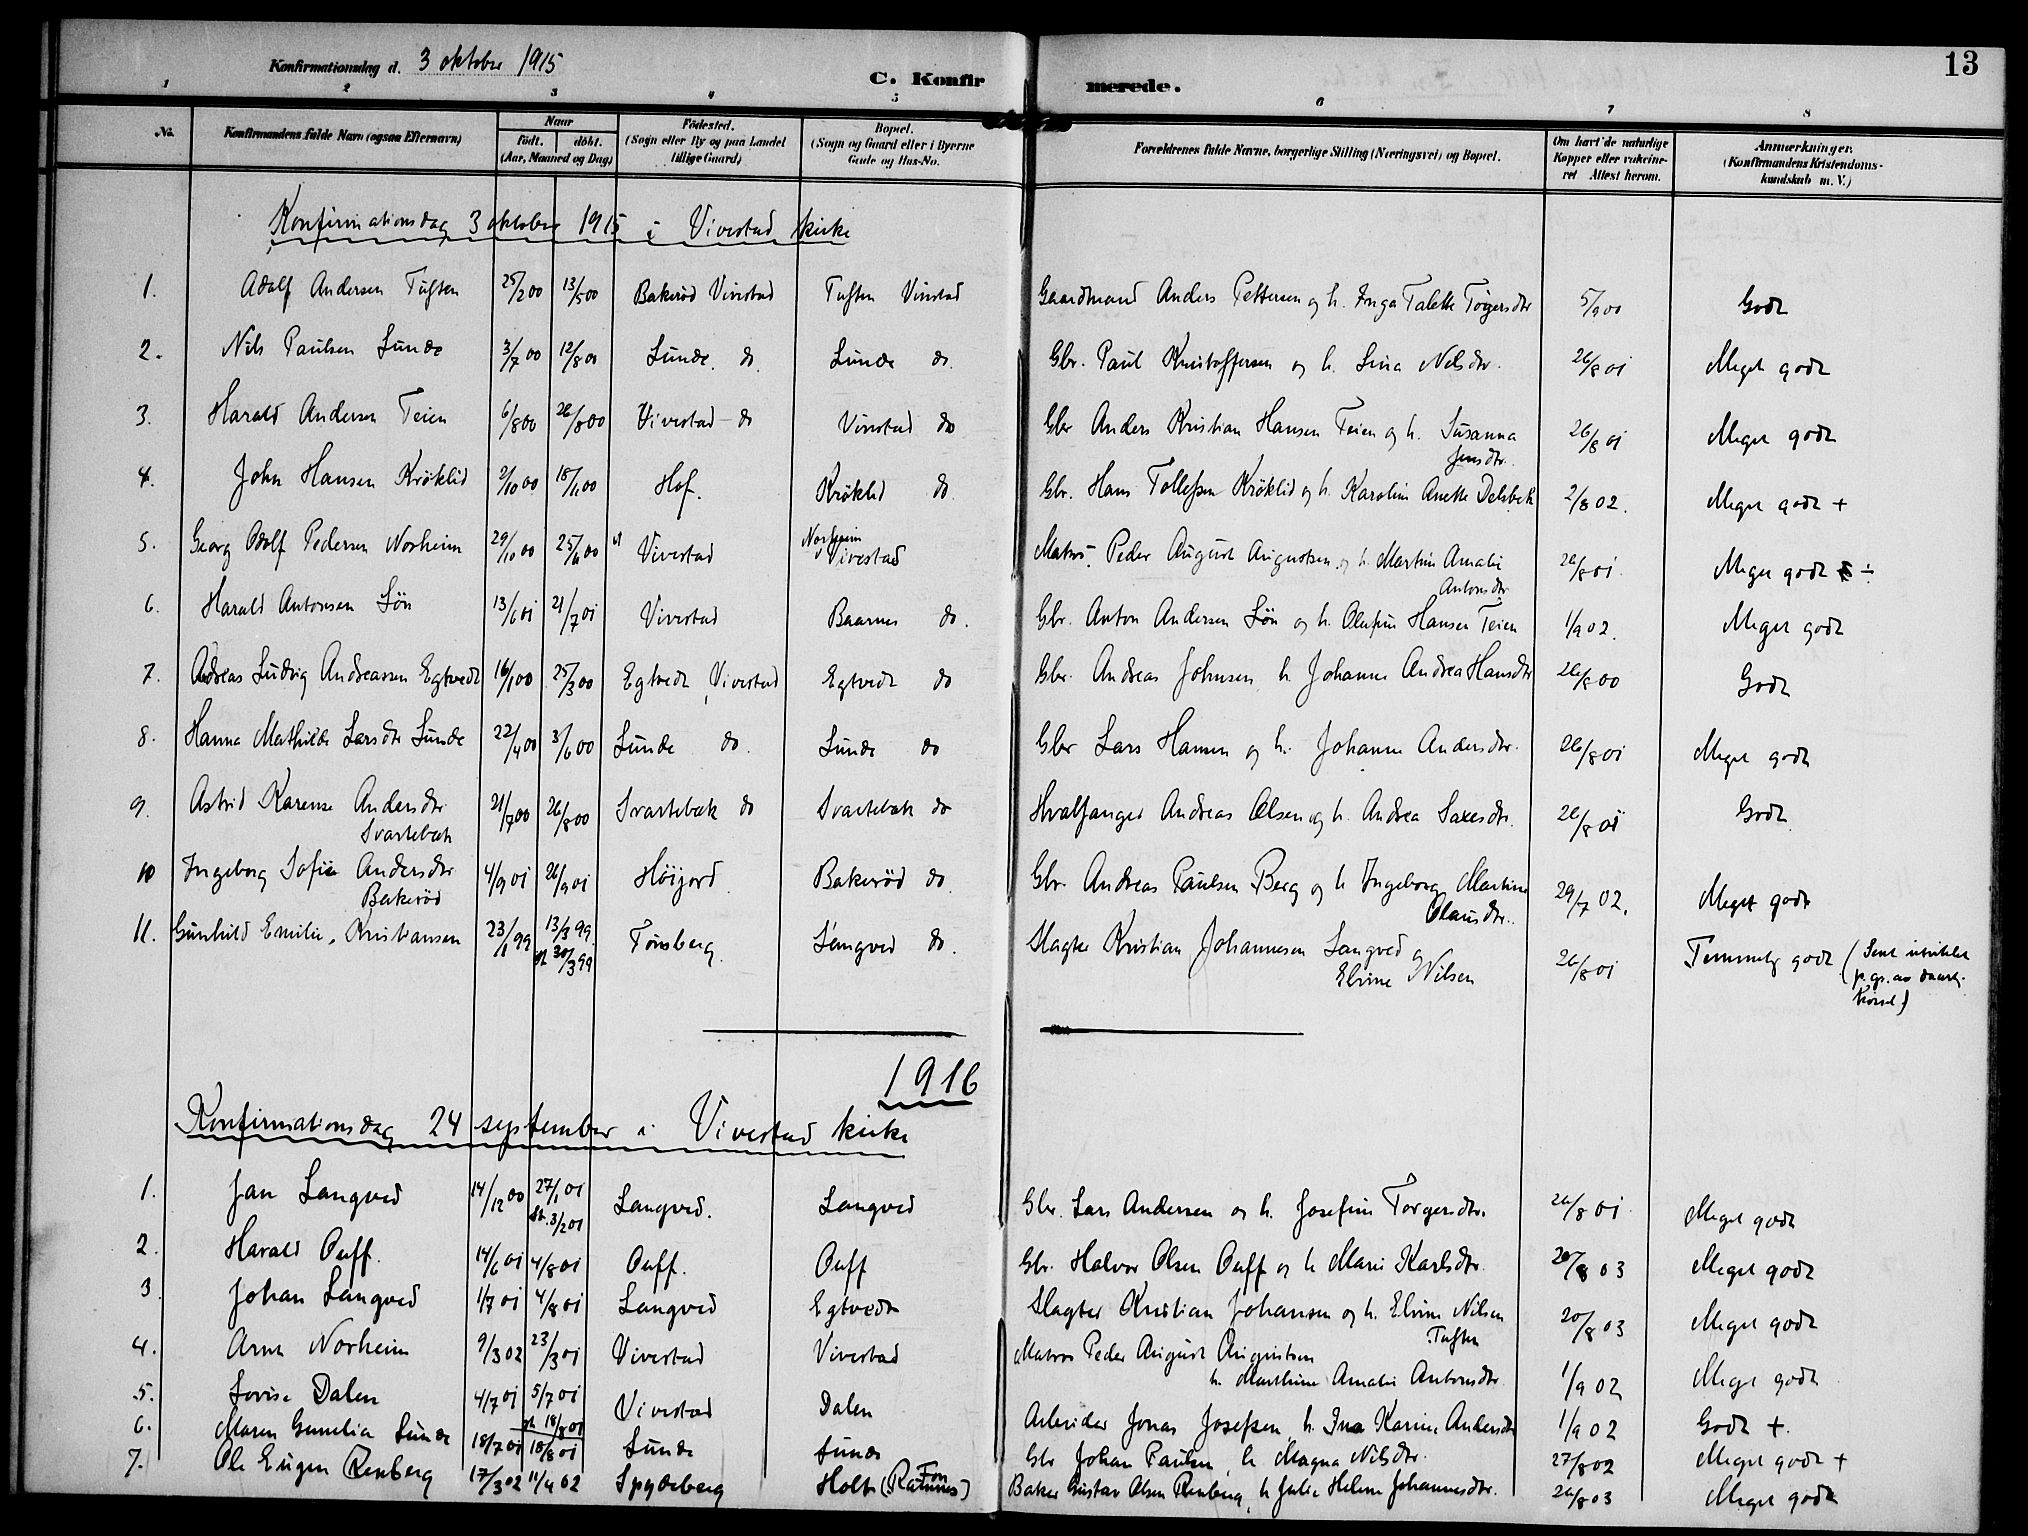 Konfirmationsdag d. 3 oktober 1915
C. Konfirmerede.
13
1 2 3 4 5 6 7 8
No. Konfirmandens fulde Navn (ogsaa Efternavn) Naar födt. döbt. (Aar, Maaned og Dag) Födested. (Sogn eller By og paa Landet tillige Gaard) Bopæl. (Sogn og Gaard eller i Byerne Gade og Hus-No. Forældrenes fulde Navne, borgerlige Stilling (Næringsvei) og Bopæl. Om havt de naturlige Kopper eller vakcineret Attest herom. Anmærkninger. (Konfirmandens Kristendomskundskab m. V.)
Konfirmationsdag 3 oktober 1915 i Vivestad kirke
1. Adolf Andersen Tuften 25/2 00 13/5 00 Bakerød Vivestad Tuften Vivestad Gaardmand Anders Pettersen og h. Inga Talette Torgersdtr 5/9 00 Godt
2. Nils Paulsen Lunde 3/7 00 12/8 00 Lunde do. Lunde do. Gbr. Paul Kristoffersen og h. Lina Nilsdtr. 26/8 01 Meget godt
3. Harald Andersen Teien 6/8 00 26/8 00 Vivestad do Vivestad do Gbr Anders Kristian Hansen Teien og h. Susanna Jensdtr. 26/8 01 Meget godt
4. John Hansen Krøklid 2/10 00 18/11 00 Hof. Krøklid do. Gbr. Hans Tollefsen Krøklid og h. Karolin Anette Delebek 2/8 02. Meget godt +
5. Georg Adolf Pedersen Norheim 29/10 00 25/11 00 Vivestad Norheim Vivestad Matros. Peder August Augustsen og h. Martine Amalie Antonsdtr 26/8 01. Meget godt ÷
6. Harald Antonsen Lön 13/6 01 21/7 01 Vivestad Baarnes do. Gbr. Anton Andersen Lön og h. Olufine Hansen Teien 1/9 02. Meget godt
7. Andreas Ludvig Andreassen Egtvedt 16/1 00 25/3 00 Egtvedt, Vivestad Egtvedt do Gbr. Andreas Johnsen h. Johanne Andrea Hansdtr 26/8 00 Godt
8. Hanna Mathilde Larsdtr Lunde 22/4 00 3/6 00 Lunde do. Lunde do Gbr Lars Hansen og h. Johanne Andersdtr. 26/8 01 Meget godt
9. Astrid Karense Andersdtr Svartebæk 21/7 00 26/8 00 Svartebæk do Svartebæk do Hvalfanger Andreas Olsen og h. Andrea Saxesdtr. 26/8 01 Godt
10 Ingeborg Sofie Andersdtr Bakerød 4/9 01 26/9 01 Höijord. Bakerød do. Gbr. Andreas Paulsen Berg og h Ingeborg Martine Olausdtr. 29/7 02. Meget godt
11. Gunhild Emilie Kristiansen 23/1 99 13/3 99. st 30/3 99 Tønsberg. Langved do. Slagter Kristian Johannesen Langved og Elvine Nilsen 26/8 01 Temmelig godt (Sent utviklet p. gr. av daarlig hørsel)
1916
Konfirmationsdag 24 september i Vivestad kirke
1. Jan Langved 14/12 00 27/1 01 st. 3/2 01 Langved. Langved Gbr. Lars Andersen og h. Josefine Torgersdtr. 26/8 01 Meget godt
2. Harald Ouff. 14/6 01 4/8 01 Ouff. Ouff Gbr. Halvor Olsen Ouff og h Marie Karlsdtr. 20/8 03 Meget godt
3 Johan Langved 1/7 01 4/8 01 Langved Egtvedt Slagter Kristian Johansen og h. Elvine Nilsen Tuften 20/8 03 Meget godt
4. Arne Norheim 9/3 02 23/3 01 Vivestad Vivestad Matros Peder August Augustsen h. Marthine Amalie Antonsdtr. 1/9 02 Meget godt
5. Lovise Dalen 4/7 01 5/7 01 st 18/8 01 Vivestad Dalen Arbeider Jonas Josefsen, h. Ina Karine Andersdtr 1/9 02 Godt +.
6. Maren Gunelia Lunde 18/7 01 18/8 01 Lunde Lunde Gbr Johan Paulsen, h. Magna Nilsdtr. 27/8 02 Meget godt +
7. Ole Eugen Renberg 17/3 02 11/4 02 Spydeberg Holt (Fon Ramnes) Baker Gustav Olsen Renberg, h Julie Helene Johannesdtr. 26/8 03 Meget godt